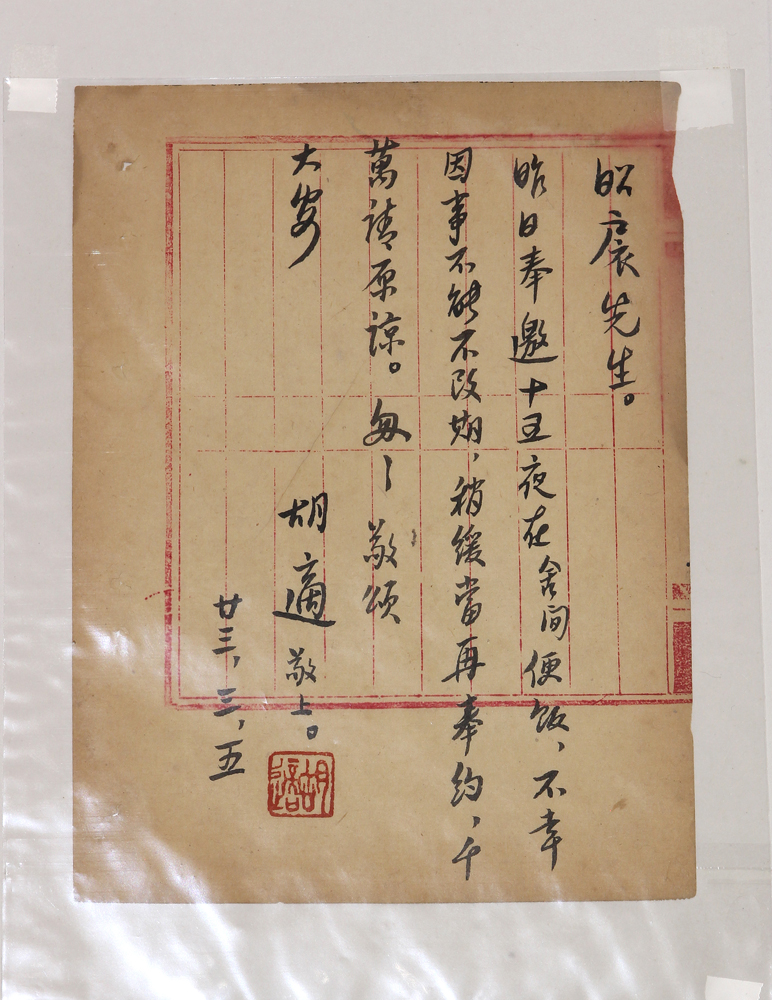 昭扆先生。
昨日奉邀十五夜在舍間便飯，不幸
因事不能不改期，稍緩當再奉約，千
萬請原諒。匆匆敬頌
大安
胡適敬上。
廿三，三，五
胡適